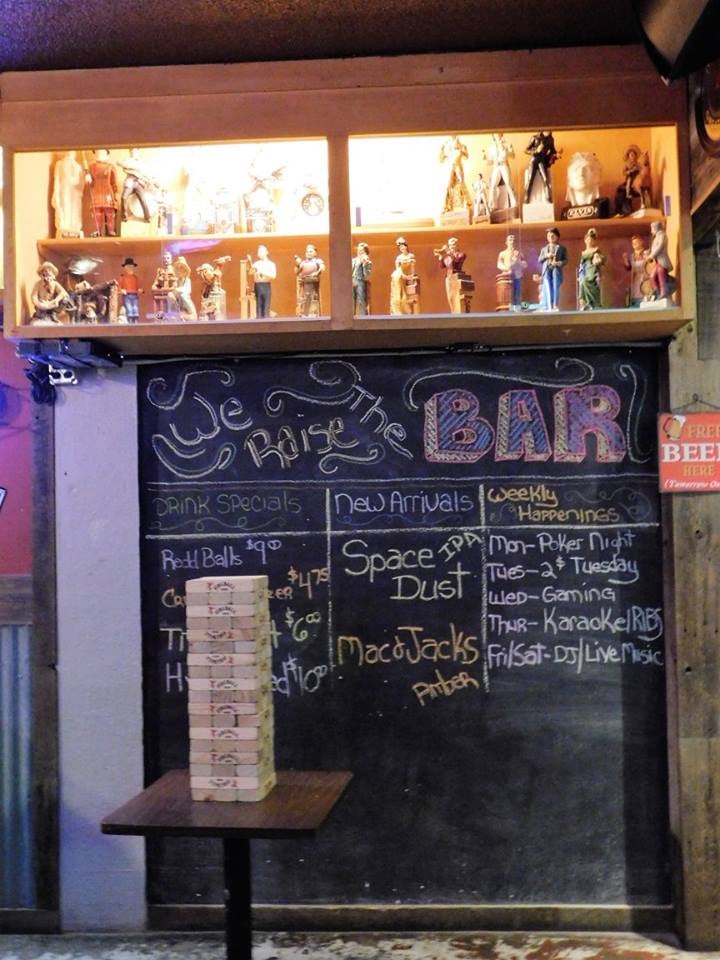 We Raise The BAR
Drink Specials
Redd Balls $9.00
$4.75
$6.00
$10.00
New Arrivals
Space Dust IPA
Mac & Jacks
Amber
Weekly
Happenings
Mon- Poker Night
Tues- 2$ Tuesday
Wed- Gaming
Thur- Karaoke/RIBS
Fri/Sat- DJ/Live Music
ELVIS
FREE
BEER
HERE